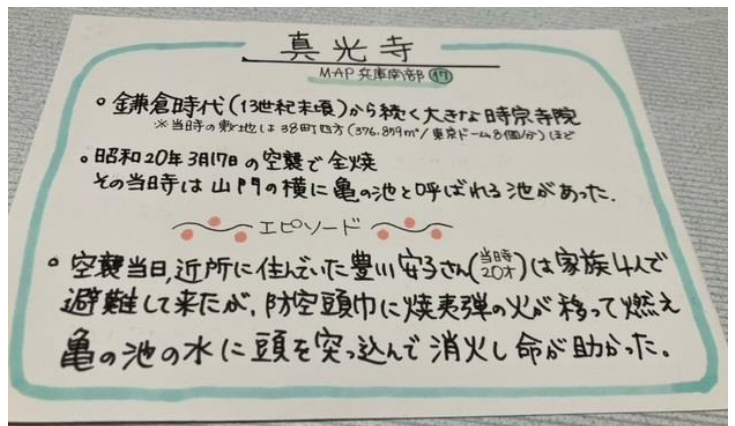 真光寺
MAP 兵庫南部 ⑰
。鎌倉時代(13世紀末頃)から続く大きな時宗寺院
※当時の敷地は38町四方(376,859㎡/東京ドーム8個分)ほど
。昭和20年3月17日の空襲で全焼
その当時は山門の横に亀の池と呼ばれる池があった.
エピソード
。空襲当日,近所に住んでいた豊川安子さん(当時20才)は家族4人で
避難して来たが,防空頭巾に焼夷弾の火が移って燃え
亀の池の水に頭を突っ込んで消火し命が助かった。